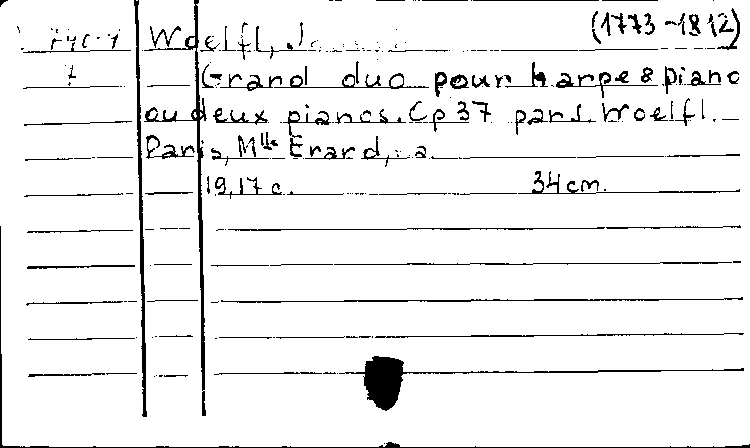 Woelfl, (1773-1812)
7 Grand duo pour harpe & piano
ou deux pianos. Op 37 par J. Woelfl.
Paris, Mlle Erard, s.a.
19,17 c. 34 cm.